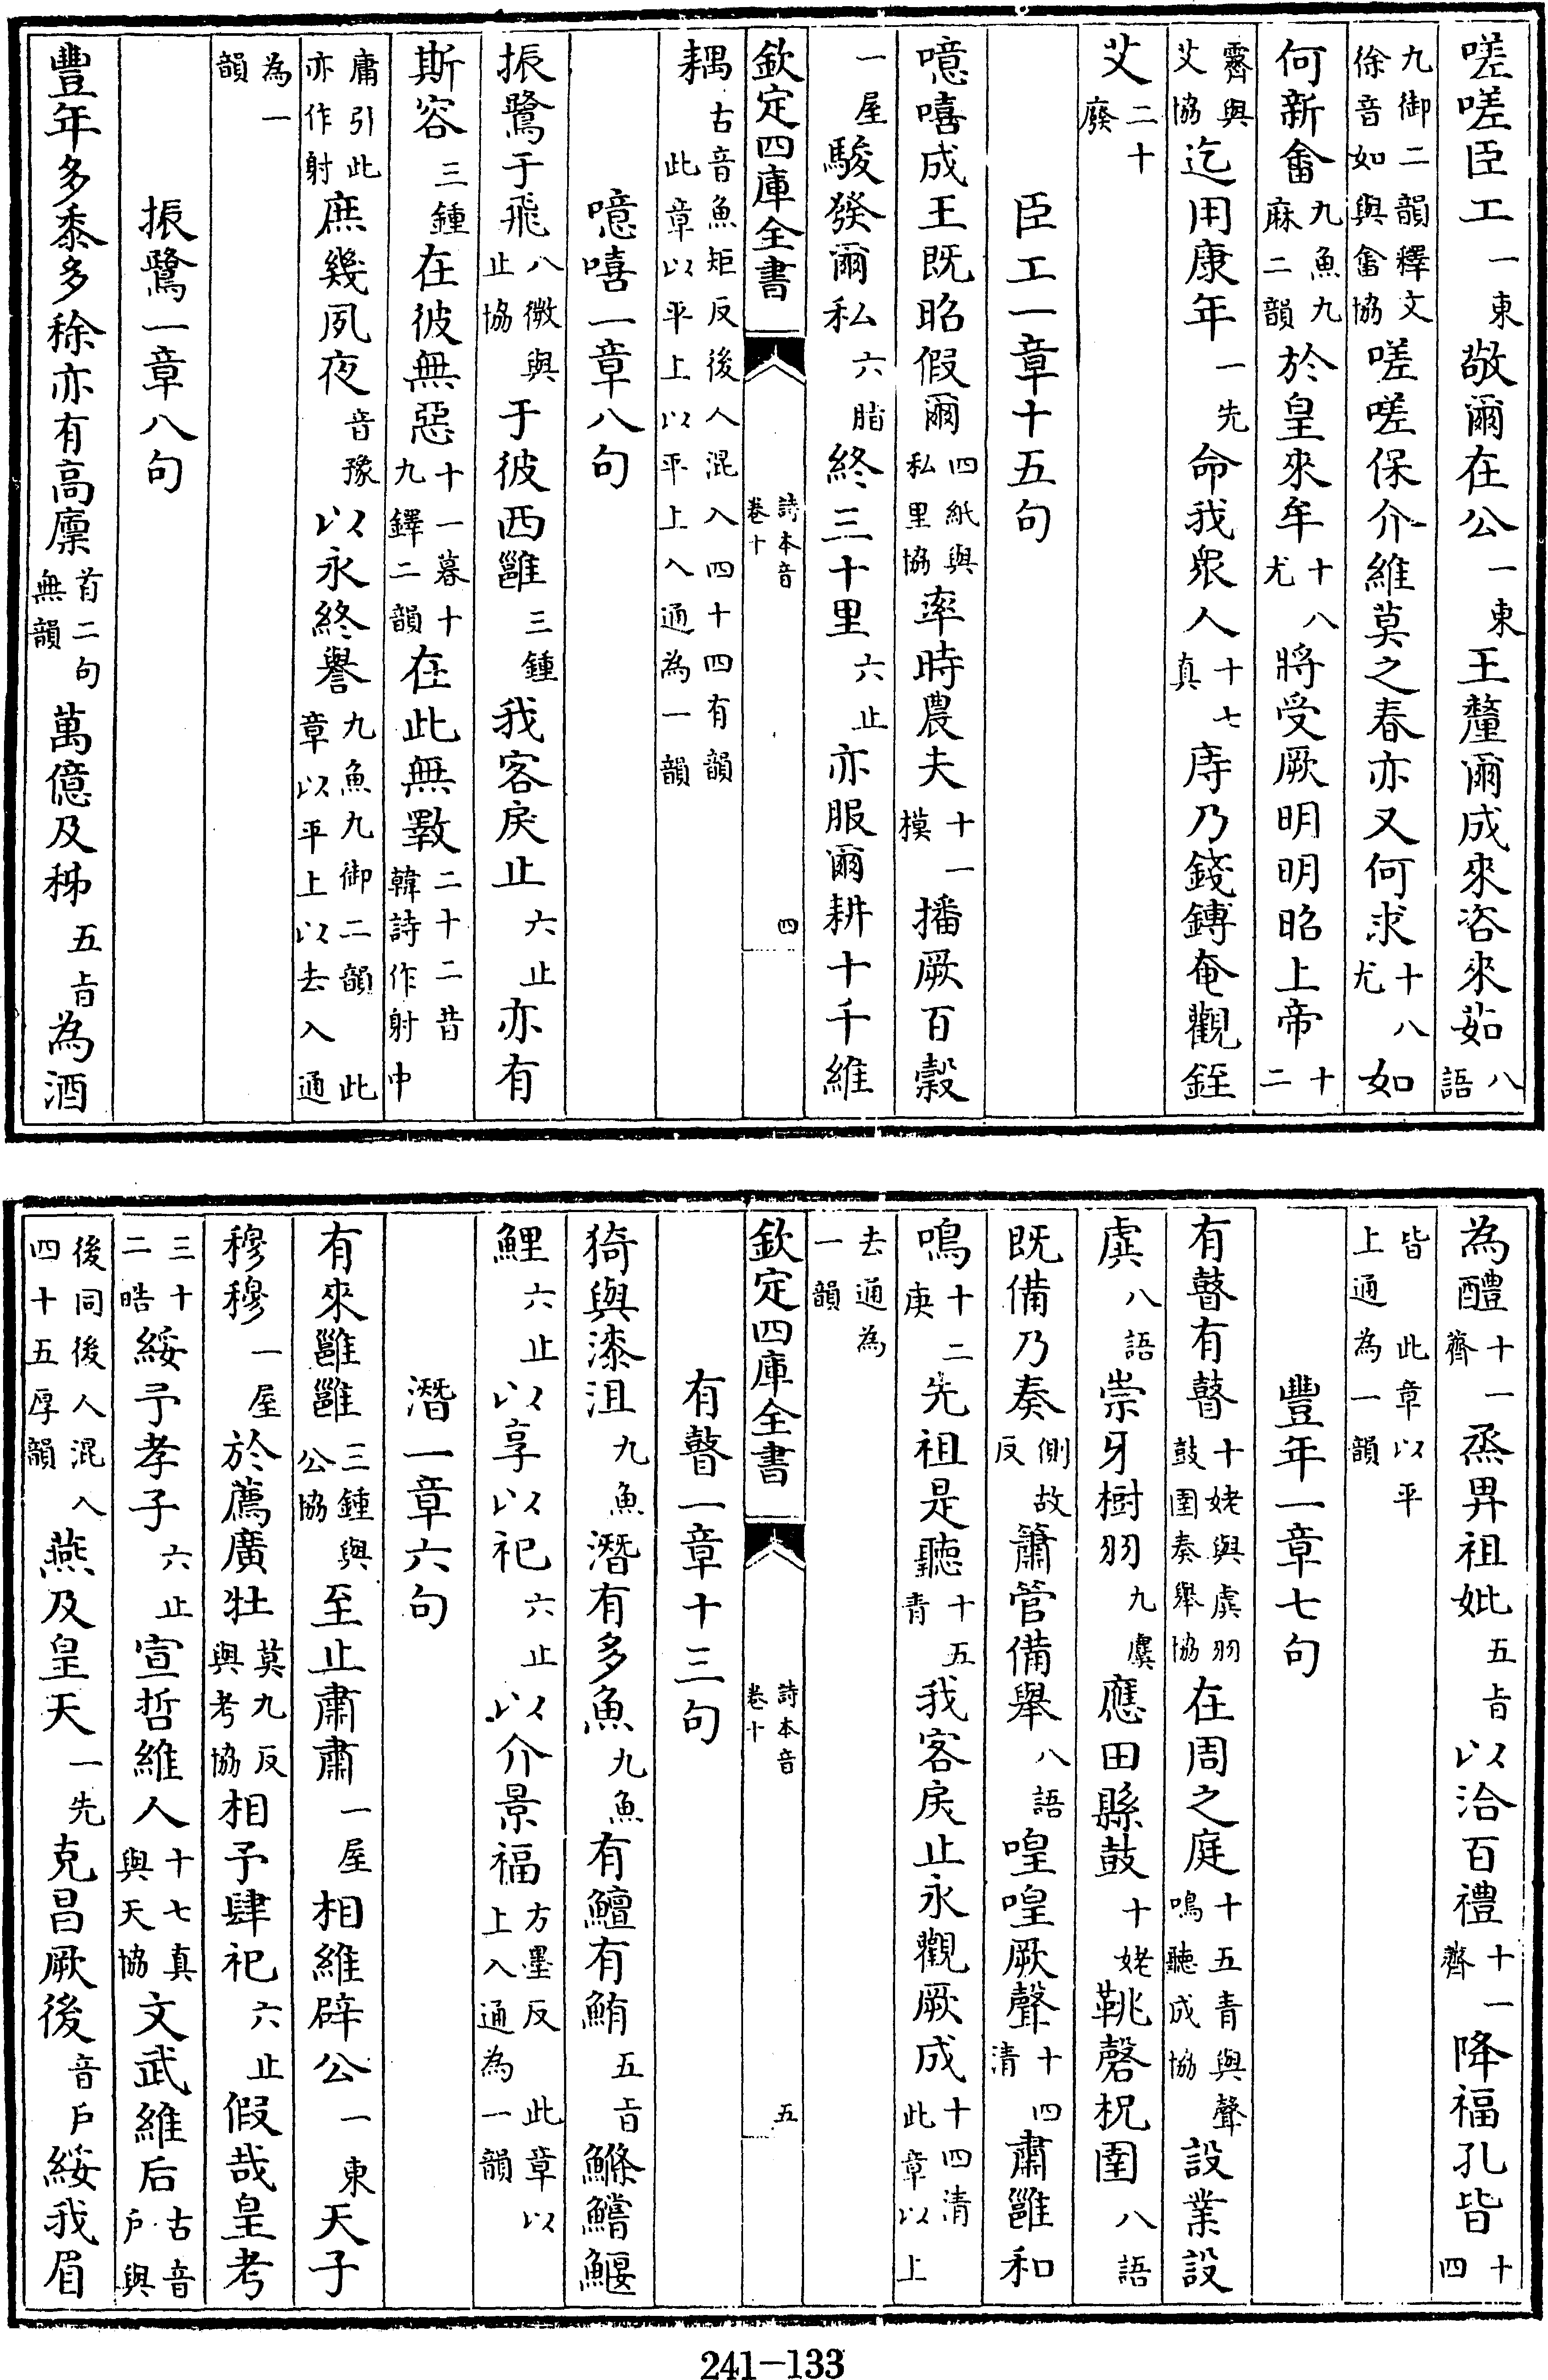 嗟嗟臣工一東敬爾在公一東王釐爾成來咨來茹八語
九御二韻釋文徐音如與畬協嗟嗟保介維莫之春亦又何求十八尤如
何新畬九魚九麻二韻於皇來牟十八尤將受厥明明昭上帝十二
霽與艾協迄用康年一先命我衆人十七真庤乃錢鎛奄觀銍
艾二十廢
臣工一章十五句
噫嘻成王既昭假爾四紙與私里協率時農夫十一模播厥百穀
一屋駿發爾私六脂終三十里六止亦服爾耕十千維
欽定四庫全書 詩本音 卷十 四
耦古音魚矩反後人混入四十四有韻此章以平上以平上入通為一韻
噫嘻一章八句
振鷺于飛八微與止協于彼西雝三鍾我客戾止六止亦有
斯容三鍾在彼無惡十一暮十九鐸二韻在此無斁二十二昔韓詩作射中
庸引此亦作射庶幾夙夜音豫以永終譽九魚九御二韻此章以平上以去入通
為一韻
振鷺一章八句
豐年多黍多稌亦有高廩首二句無韻萬億及秭五旨為酒
為醴十一薺烝畀祖妣五旨以洽百禮十一薺降福孔皆十四
皆此章以平上通為一韻
豐年一章七句
有瞽有瞽十姥與虡羽鼓圉奏舉協在周之庭十五青與聲鳴聽成協設業設
虡八語崇牙樹羽九麌應田縣鼓十姥鞉磬柷圉八語
既備乃奏側故反簫管備舉八語喤喤厥聲十四清肅雝和
鳴十二庚先祖是聽十五青我客戾止永觀厥成十四清此章以上
去通為一韻
欽定四庫全書 詩本音 卷十 五
有瞽一章十三句
猗與漆沮九魚潛有多魚九魚有鱣有鮪五旨鰷鱨鰋
鯉六止以享以祀六止以介景福方墨反此章以上入通為一韻
潛一章六句
有來雝雝三鍾與公協至止肅肅一屋相維辟公一東天子
穆穆一屋於薦廣牡莫九反與考協相予肆祀六止假哉皇考
三十二皓綏予孝子六止宣哲維人十七真與天協文武維后古音戶與
後同後人混入四十五厚韻燕及皇天一先克昌厥後音戶綏我眉
241-133